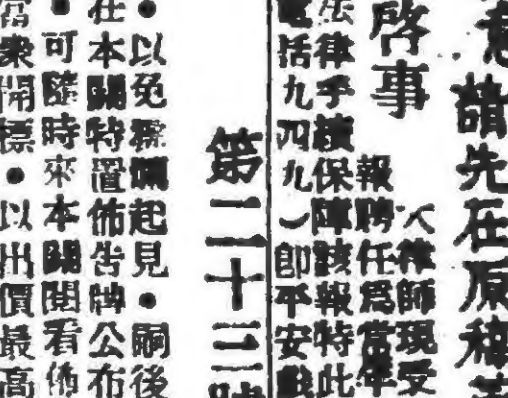 請先在原
啓事
大律師現受
報聘任爲常年
法律手續保障該報特此
電話九四九）即平安戲
第二十三號
●以免爛起見●嗣後
在本關特置佈告牌公布
●可隨時來本關閱看佈
當衆開標●以出價最高